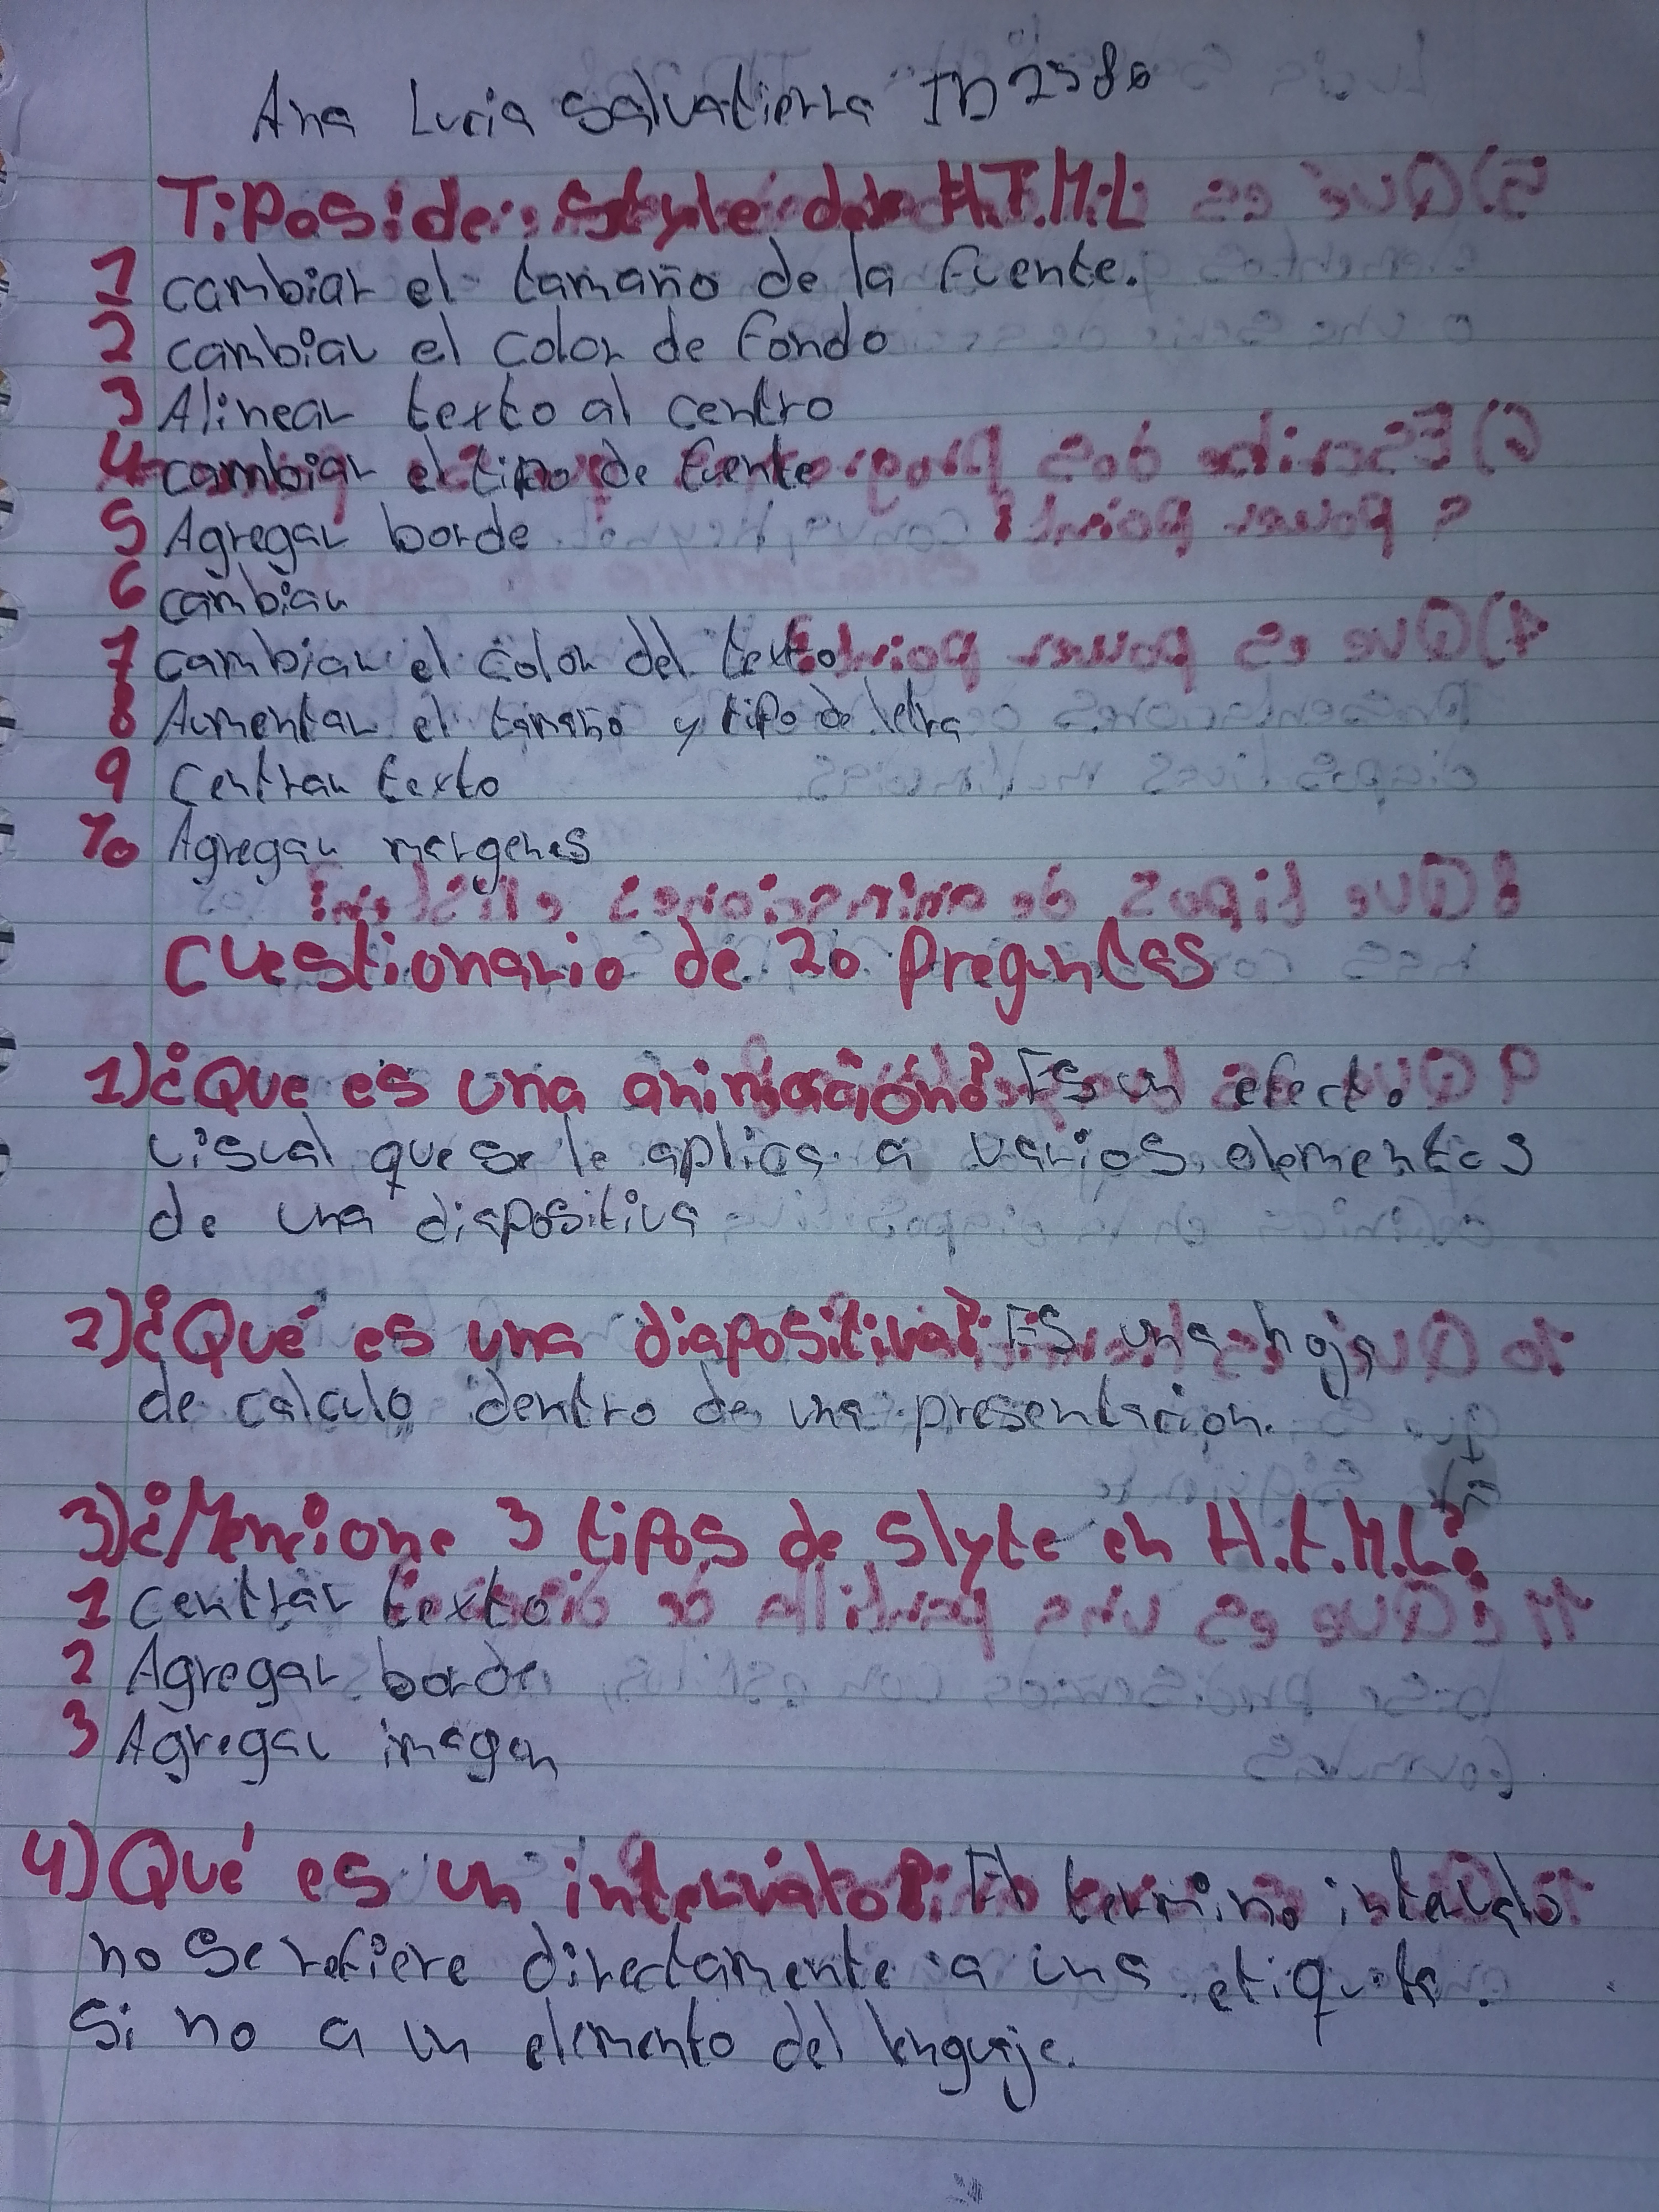 Ana Lucia Salvatierra ID 2386
Tipos de style de H.T.M.L
1 cambiar el tamaño de la fuente.
2 cambiar el color de fondo
3 Alinear texto al centro
4 cambiar el tipo de fuente
5 Agregar borde
6 cambiar
7 cambiar el color del texto
8 Aumentar el tamaño y tipo de letra
9 Centrar texto
10 Agregar margenes
Cuestionario de 20 Preguntas
1) ¿Que es una animación? Es un efecto
visual que se le aplica a varios elementos
de una diapositiva
2) ¿Qué es una diapositiva? Es una hoja
de calculo dentro de una presentacion.
3) ¿Mencione 3 tipos de slyte en H.t.M.L?
1 Centrar texto
2 Agregar borde
3 Agregar imagen
4) Qué es un intervalo?: El termino intervalo
no se refiere directamente a una etiqueta.
Si no a un elemento del lenguaje.